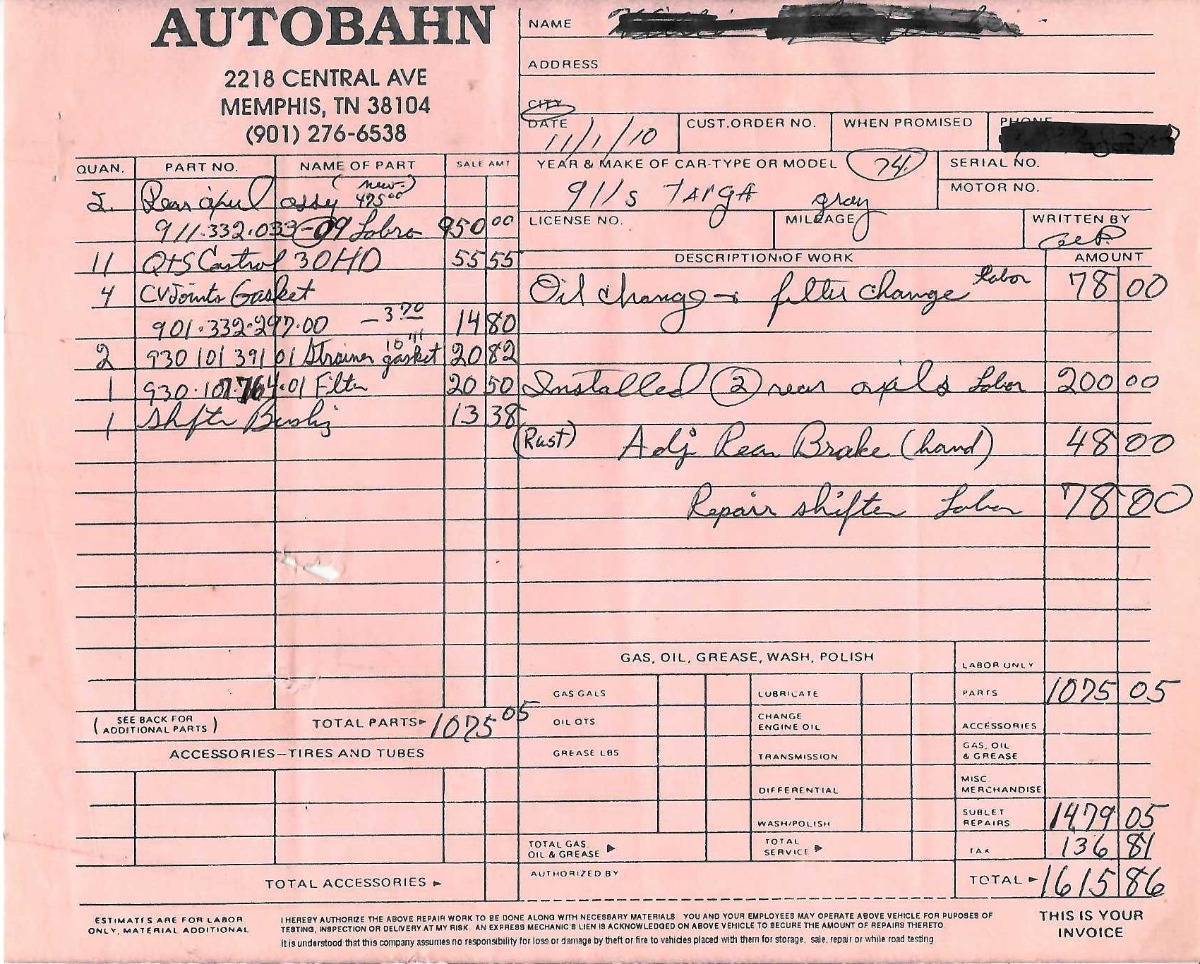 AUTOBAHN
2218 CENTRAL AVE
MEMPHIS, TN 38104
(901) 276-6538
NAME
ADDRESS
CITY
DATE 11/1/10
CUST.ORDER NO.
WHEN PROMISED
PHONE
YEAR & MAKE OF CAR-TYPE OR MODEL 74
911s TARGA gray
SERIAL NO.
MOTOR NO.
LICENSE NO.
MILEAGE
WRITTEN BY
QUAN. PART NO. NAME OF PART SALE AMT
2 Rear assy (new) 475 00
911.332.033-09 Lobro 950 00
11 QTS Castrol 30HD 55 55
4 CV Joints Gasket
901.332.297.00 - 3.70 14 80
2 930 101 391 01 Strainer gasket 10 41 20 82
1 930.107.764.01 Filter 20 50
1 Shifter 13 38
(SEE BACK FOR ADDITIONAL PARTS) TOTAL PARTS 1075 05
ACCESSORIES—TIRES AND TUBES
TOTAL ACCESSORIES
DESCRIPTION OF WORK AMOUNT
Oil change filter change labor 78 00
Installed 2 rear Labor 200 00
(Rust) Adj Rear Brake (hand) 48 00
Repair shifter Labor 78 00
GAS, OIL, GREASE, WASH, POLISH
GAS GALS
OIL QTS
GREASE LBS
TOTAL GAS OIL & GREASE
LUBRICATE
CHANGE ENGINE OIL
TRANSMISSION
DIFFERENTIAL
WASH/POLISH
TOTAL SERVICE
LABOR ONLY
PARTS 1075 05
ACCESSORIES
GAS, OIL & GREASE
MISC MERCHANDISE
SUBLET REPAIRS 1479 05
TAX 136 81
AUTHORIZED BY
TOTAL 1615 86
ESTIMATES ARE FOR LABOR ONLY, MATERIAL ADDITIONAL
I HEREBY AUTHORIZE THE ABOVE REPAIR WORK TO BE DONE ALONG WITH NECESSARY MATERIALS. YOU AND YOUR EMPLOYEES MAY OPERATE ABOVE VEHICLE FOR PUPOSES OF
TESTING, INSPECTION OR DELIVERY AT MY RISK. AN EXPRESS MECHANIC'S LIEN IS ACKNOWLEDGED ON ABOVE VEHICLE TO SECURE THE AMOUNT OF REPAIRS THERETO.
It is understood that this company assumes no responsibility for loss or damage by theft or fire to vehicles placed with them for storage, sale, repair or while road testing
THIS IS YOUR INVOICE